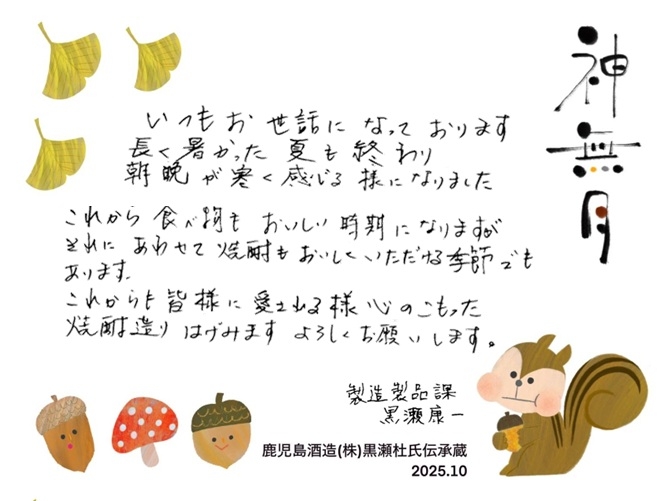 神無月
いつもお世話になっております
長く暑かった夏も終わり
朝晩が寒く感じる様になりました
これから食べ物もおいしい時期になりますが
それにあわせて焼酎もおいしくいただける季節でも
あります。
これからも皆様に愛される様心のこもった
焼酎造りはげみます よろしくお願いします。
製造製品課
黒瀬康一
鹿児島酒造(株)黒瀬杜氏伝承蔵
2025.10